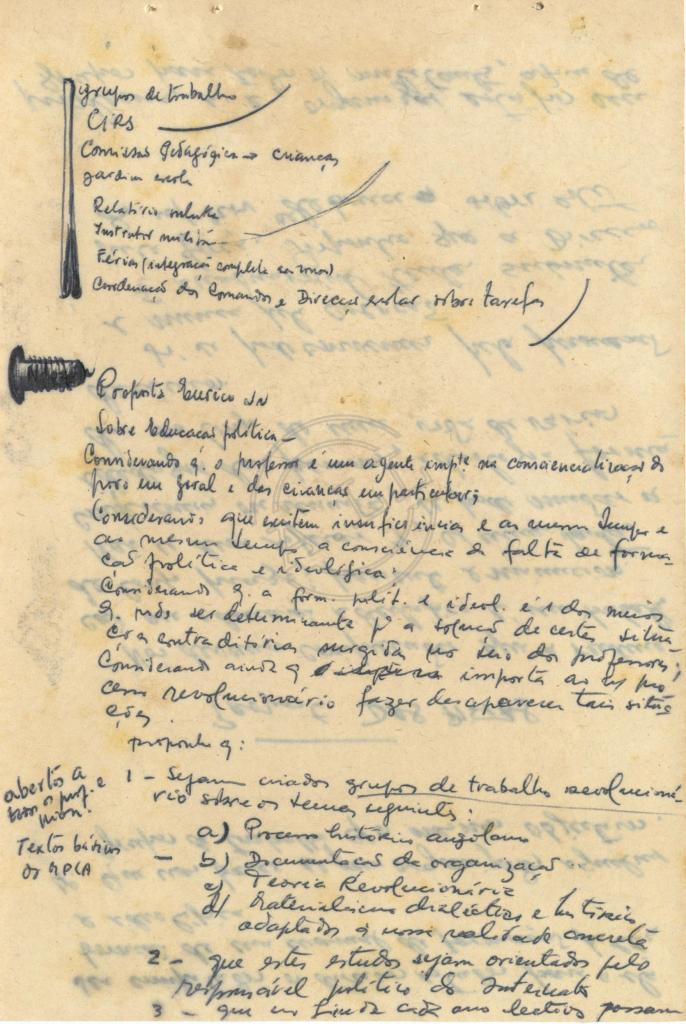 grupos de trabalho
CIRS
Comissão Pedagógica crianças
jardim escola
Relatório
Instrutor
Férias (integração completa
Coordenação dos Comandos e Direcção escolar sobre tarefas
Proposta Eurico
Sobre Educação política –
Considerando q. o professor é um agente impte na consciencialização do
povo em geral e das crianças em particular;
Considerando que existem insuficiências e ao mesmo tempo e
ao mesmo tempo a consciência da falta de forma-
ção política e ideológica;
Considerando q. a form. polit. e ideol. é 1 dos meios
q. pode ser determinante pª a solução de certas situa-
ções contraditórias surgidas no seio dos professores;
Considerando ainda q importa ao n/ pro
cesso revolucionário fazer desaparecer tais situa
ções,
proponho q:
1 – Sejam criados grupos de trabalho revolucioná-
rio sobre os temas seguintes:
a) Processo histórico angolano
– b) Documentação da organização
c) Teoria Revolucionária
d) Materialismo dialéctico e histórico
adaptados à nossa realidade concreta
2 – que estes estudos sejam orientados pelo
responsável político do Internato
3 – que no fim de cada ano lectivo possam
abertos a
todos os prof. e
Textos básicos
do MPLA